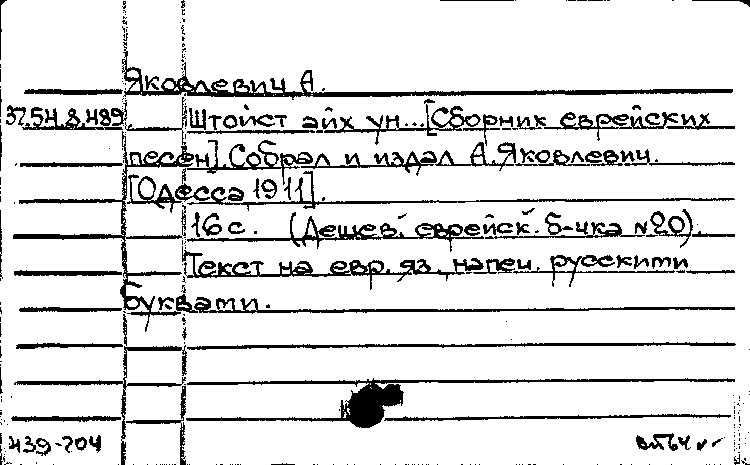 Яковлевич, А.
37.54.8.489. Штойст айх ун...[Сборник еврейских
песен]. Собрал и издал А. Яковлевич.
[Одесса, 1911].
16 с. (Дешев. еврейск. б-чка №20).
Текст на евр. яз., напеч. русскими
буквами.
439-704